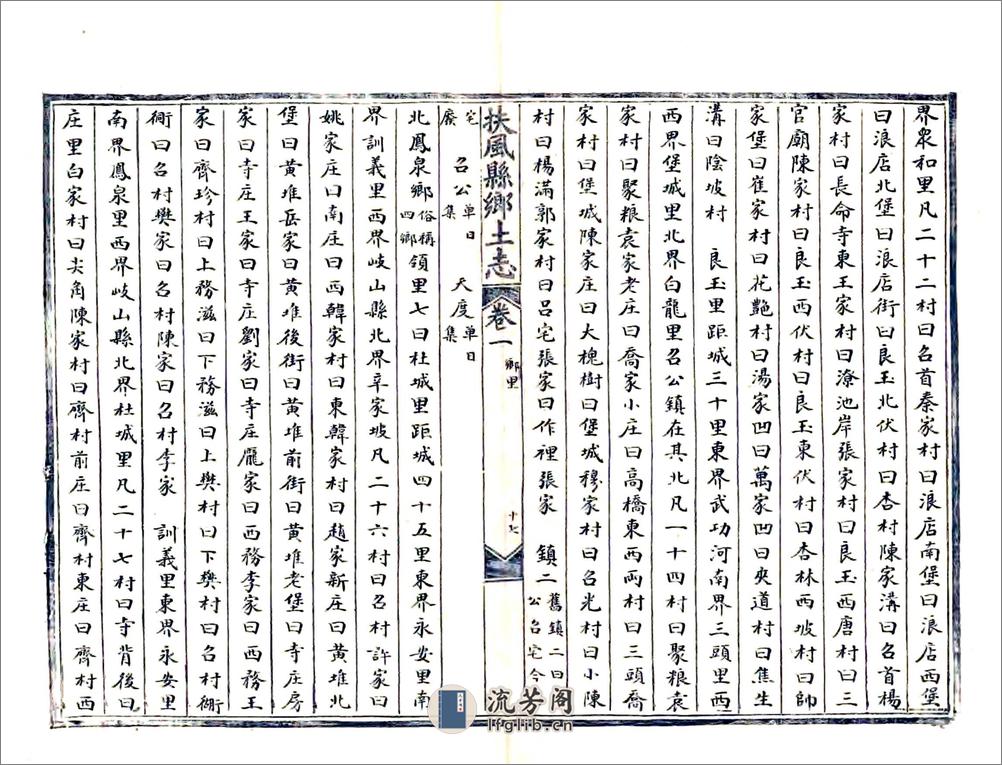 界衆和里凡二十二村曰召首秦家村曰浪店南堡曰浪店西堡
曰浪店北堡曰浪店街曰良玉北伏村曰杏村陳家溝曰召首楊
家村曰長命寺東王家村曰潦池岸張家村曰良玉西唐村曰三
官廟陳家村曰良玉西伏村曰良玉東伏村曰杏林西坡村曰帥
家堡曰崔家村曰花艷村曰湯家凹曰萬家凹曰夾道村曰焦生
溝曰陰坡村　良玉里距城三十里東界武功河南界三頭里西
西界堡城里北界白龍里召公鎮在其北凡一十四村曰聚粮袁
家村曰聚粮袁家老庄曰喬家小庄曰高橋東西兩村曰三頭喬
家村曰堡城陳家庄曰大槐樹曰堡城穆家村曰召光村曰小陳
村曰楊滿郭家村曰呂宅張家曰作裡張家　鎮二舊鎮二曰公召宅今
扶風縣鄉土志
卷一
鄉里
十七
宅廢　召公單日集　天度單日集
北鳳泉鄉俗稱四鄉領里七曰杜城里距城四十五里東界永安里南
界訓義里西界岐山縣北界辛家坡凡二十六村曰召村許家曰
姚家庄曰南庄曰西韓家村曰東韓家村曰趙家新庄曰黃堆北
堡曰黃堆岳家曰黃堆後街曰黃堆前街曰黃堆老堡曰寺庄房
家曰寺庄王家曰寺庄劉家曰寺庄龐家曰西務李家曰西務王
家曰齊珍村曰上務滋曰下務滋曰上樊村曰下樊村曰召村衚
衕曰召村樊家曰召村陳家曰召村李家　訓義里東界永安里
南界鳳泉里西界岐山縣北界杜城里凡二十七村曰寺背後曰
庄里白家村曰尖角陳家村曰齊村前庄曰齊村東庄曰齊村西
流芳阁
lfglib.cn